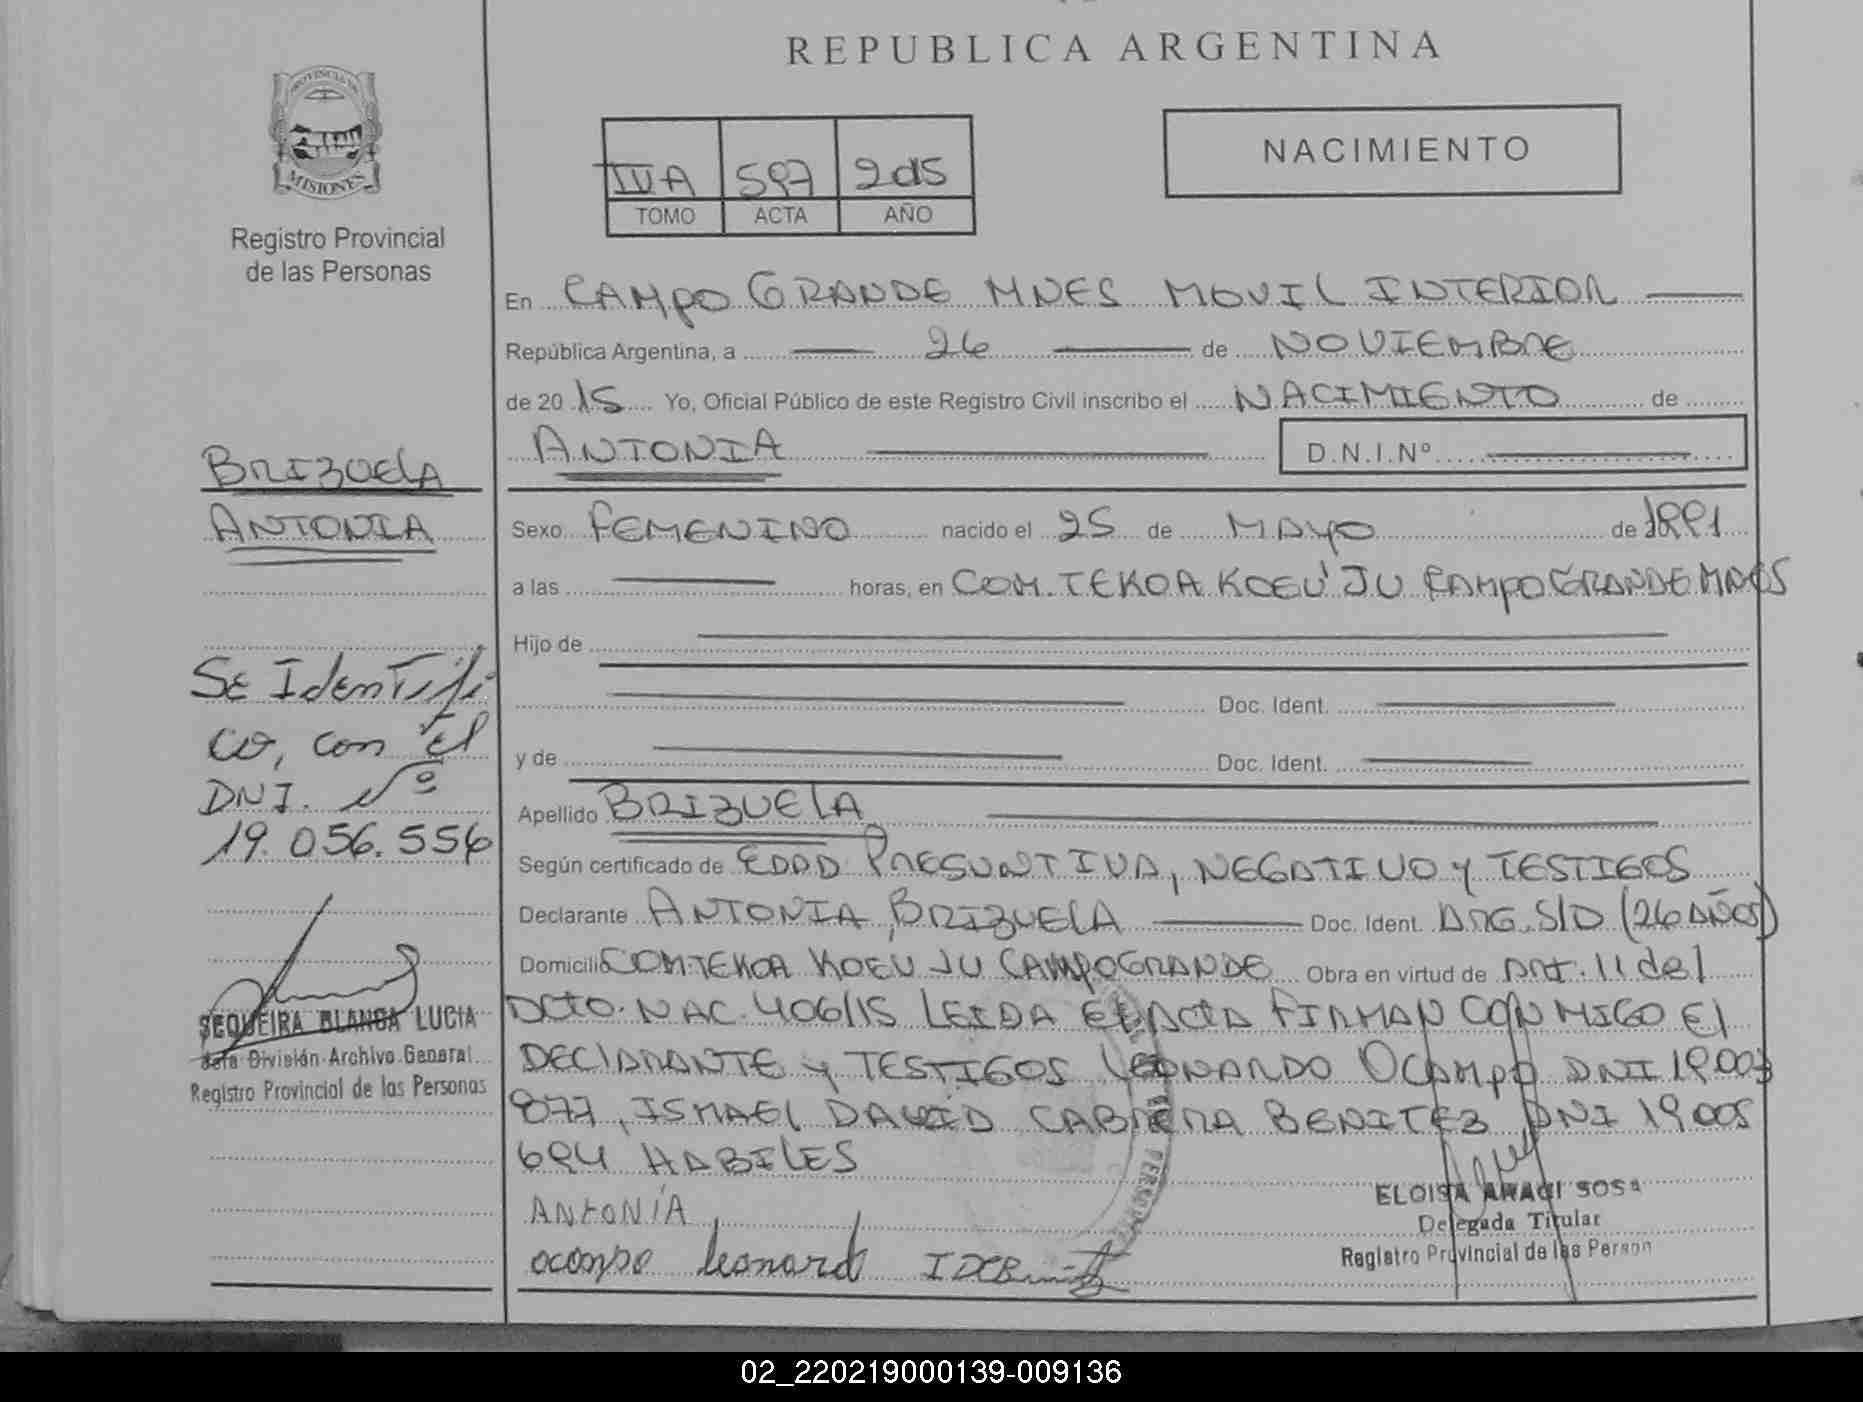 REPUBLICA ARGENTINA
PROVINCIA DE
MISIONES
Registro Provincial
de las Personas
NACIMIENTO
IVA 597 2015
TOMO ACTA AÑO
En CAMPO GRANDE MNES MOVIL INTERIOR
República Argentina, a 26 de NOVIEMBRE
de 2015 Yo, Oficial Público de este Registro Civil inscribo el NACIMIENTO de
ANTONIA D.N.I.Nº
BRIZUELA
ANTONIA
Sexo FEMENINO nacido el 25 de MAYO de 1991
a las horas, en COM. TEKOA KOEU'JU CAMPO GRANDE MNES
Hijo de
Doc. Ident.
y de Doc. Ident.
Apellido BRIZUELA
Según certificado de EDAD PRESUNTIVA, NEGATIVO Y TESTIGOS
Declarante ANTONIA BRIZUELA Doc. Ident. ARG. S/D (26 AÑOS)
Domicilio COM. TEKOA KOEU JU CAMPO GRANDE Obra en virtud de ART. 11 del
DCTO. NAC. 406/15 LEIDA EL ACTA FIRMAN CONMIGO El
DEClARANTE Y TESTIGOS LEONARDO OCAMPO DNI 19.003
877, ISMAEL DAVID CABRERA BENITEZ DNI 19.005
694 HABILES
ANTONÍA
ocampo leonard
ELOISA ANAGI SOSA
Delegada Titular
Registro Provincial de las Person
Se Identifi
co, con el
DNI. Nº
19.056.556
SEQUEIRA BLANCA LUCIA
Jefa División Archivo General
Registro Provincial de las Personas
02_220219000139-009136